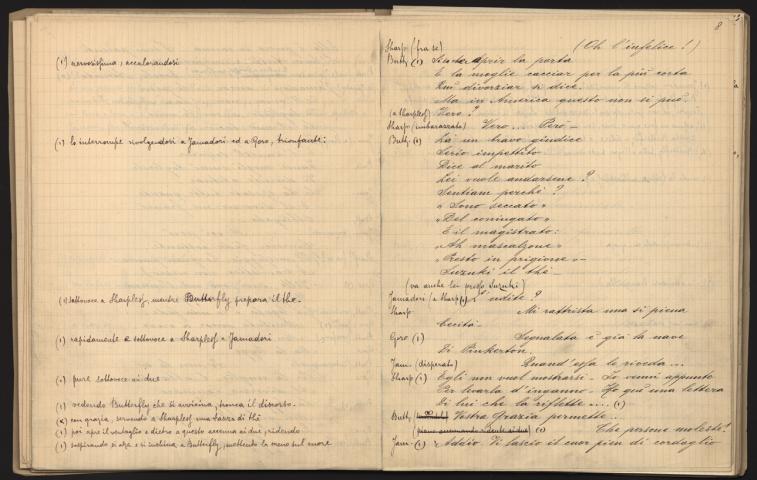 (1) nervosissima, accalorandosi
(1) lo interrompe rivolgendosi a Jamadori ed a Goro, trionfante:
(1) sottovoce a Sharpless, mentre Butterfly prepara il the.
(1) rapidamente e sottovoce a Sharpless e Jamadori
(1) pure sottovoce ai due
(1) vedendo Butterfly che si avvicina, tronca il discorso.
(2) con grazia, servendo a Sharpless una tazza di thè
(1) poi apre il ventaglio e dietro a questo accenna ai due, ridendo
(1) sospirando si alza e si inchina a Butterfly, mettendo la mano sul cuore
8
Sharp (fra se) (Oh l'infelice!)
Butt (1) aprir la porta
E la moglie cacciar per la più corta
Qui divorziar si dice.
Ma in America questo non si può.
(a Sharpless) Vero?
Sharp (imbarazzato) Vero... Però –
Butt. (1) Là un bravo giudice
Serio impettito
Dice al marito
Lei vuole andarsene?
Sentiam perchè?
"Sono seccato"
"Del coniugato"
E il magistrato:
"Ah mascalzone"
"Presto in prigione" –
Suzuki il thè –
(va anche lei presso Suzuki)
Jamadori (a Sharp) (1) udite?
Sharp Mi rattrista una sì piena
Cecità –
Goro (1) Segnalata è già la nave
Di Pinkerton.
Jam. (disperato) Quand'essa lo riveda...
Sharp (1) Egli non vuol mostrarsi – Io venni appunto
Per levarla d'inganno – Ho quì una lettera
Di lui che la riflette... (1)
Butt Vostra Grazia permette...
(piano ridente ai due) (2) Che persone moleste!
Jam. (1) Addio. Vi lascio il cuor pien di cordoglio